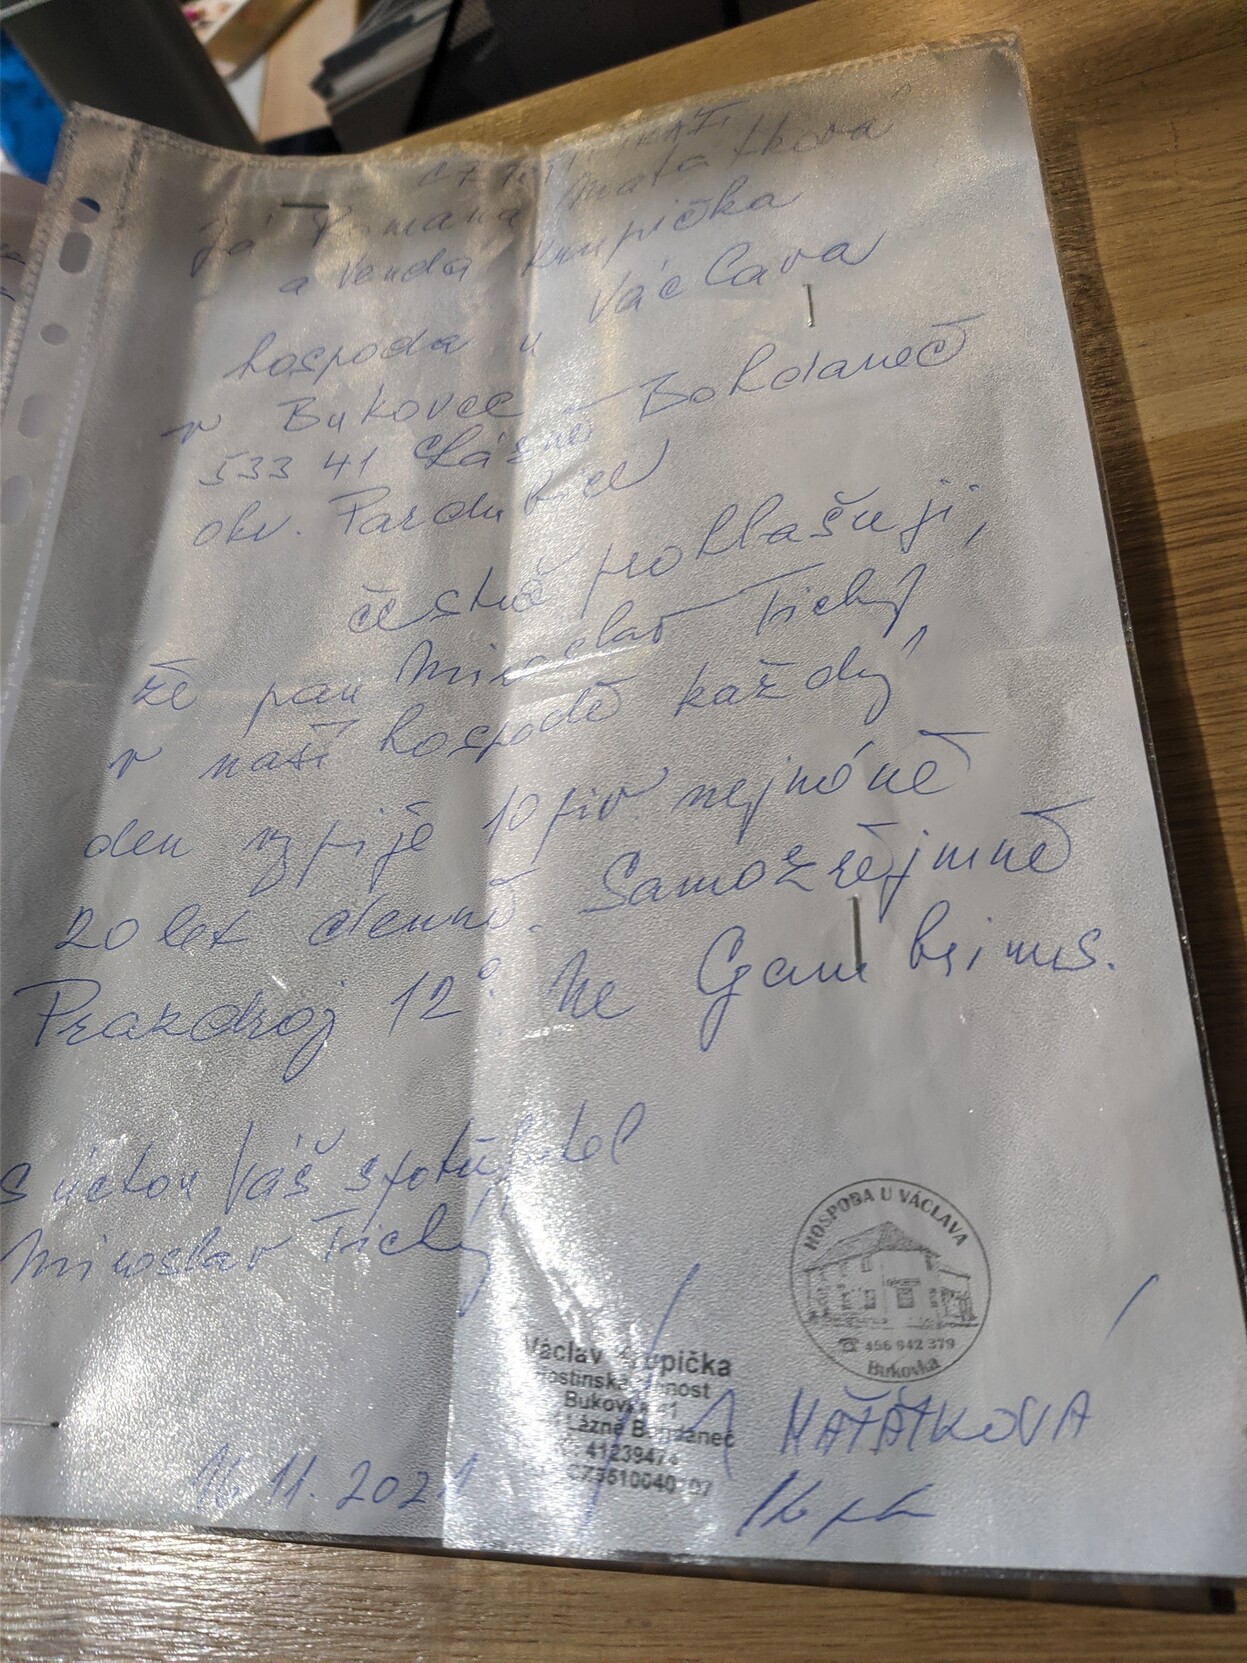 Já Romana Maťátkova
a Venda Krupička
hospoda u Václava
v Bukovce
533 41 Lázně Bohdaneč
okr. Pardubice
čestně prohlašuji,
že pan Miroslav Tichý
v naší hospodě každý
den vypije 10 piv nejméně
20 let denně. Samozřejmně
Prazdroj 12° Ne Gambrinus.
S úctou Váš spotřebitel
Miroslav Tichý
HOSPODA U VÁCLAVA
☎ 466 942 379
Bukovka
Václav Krupička
Hostinská činnost
Bukovka 41
Lázně Bohdaneč
MAŤÁTKOVA
16.11.2021